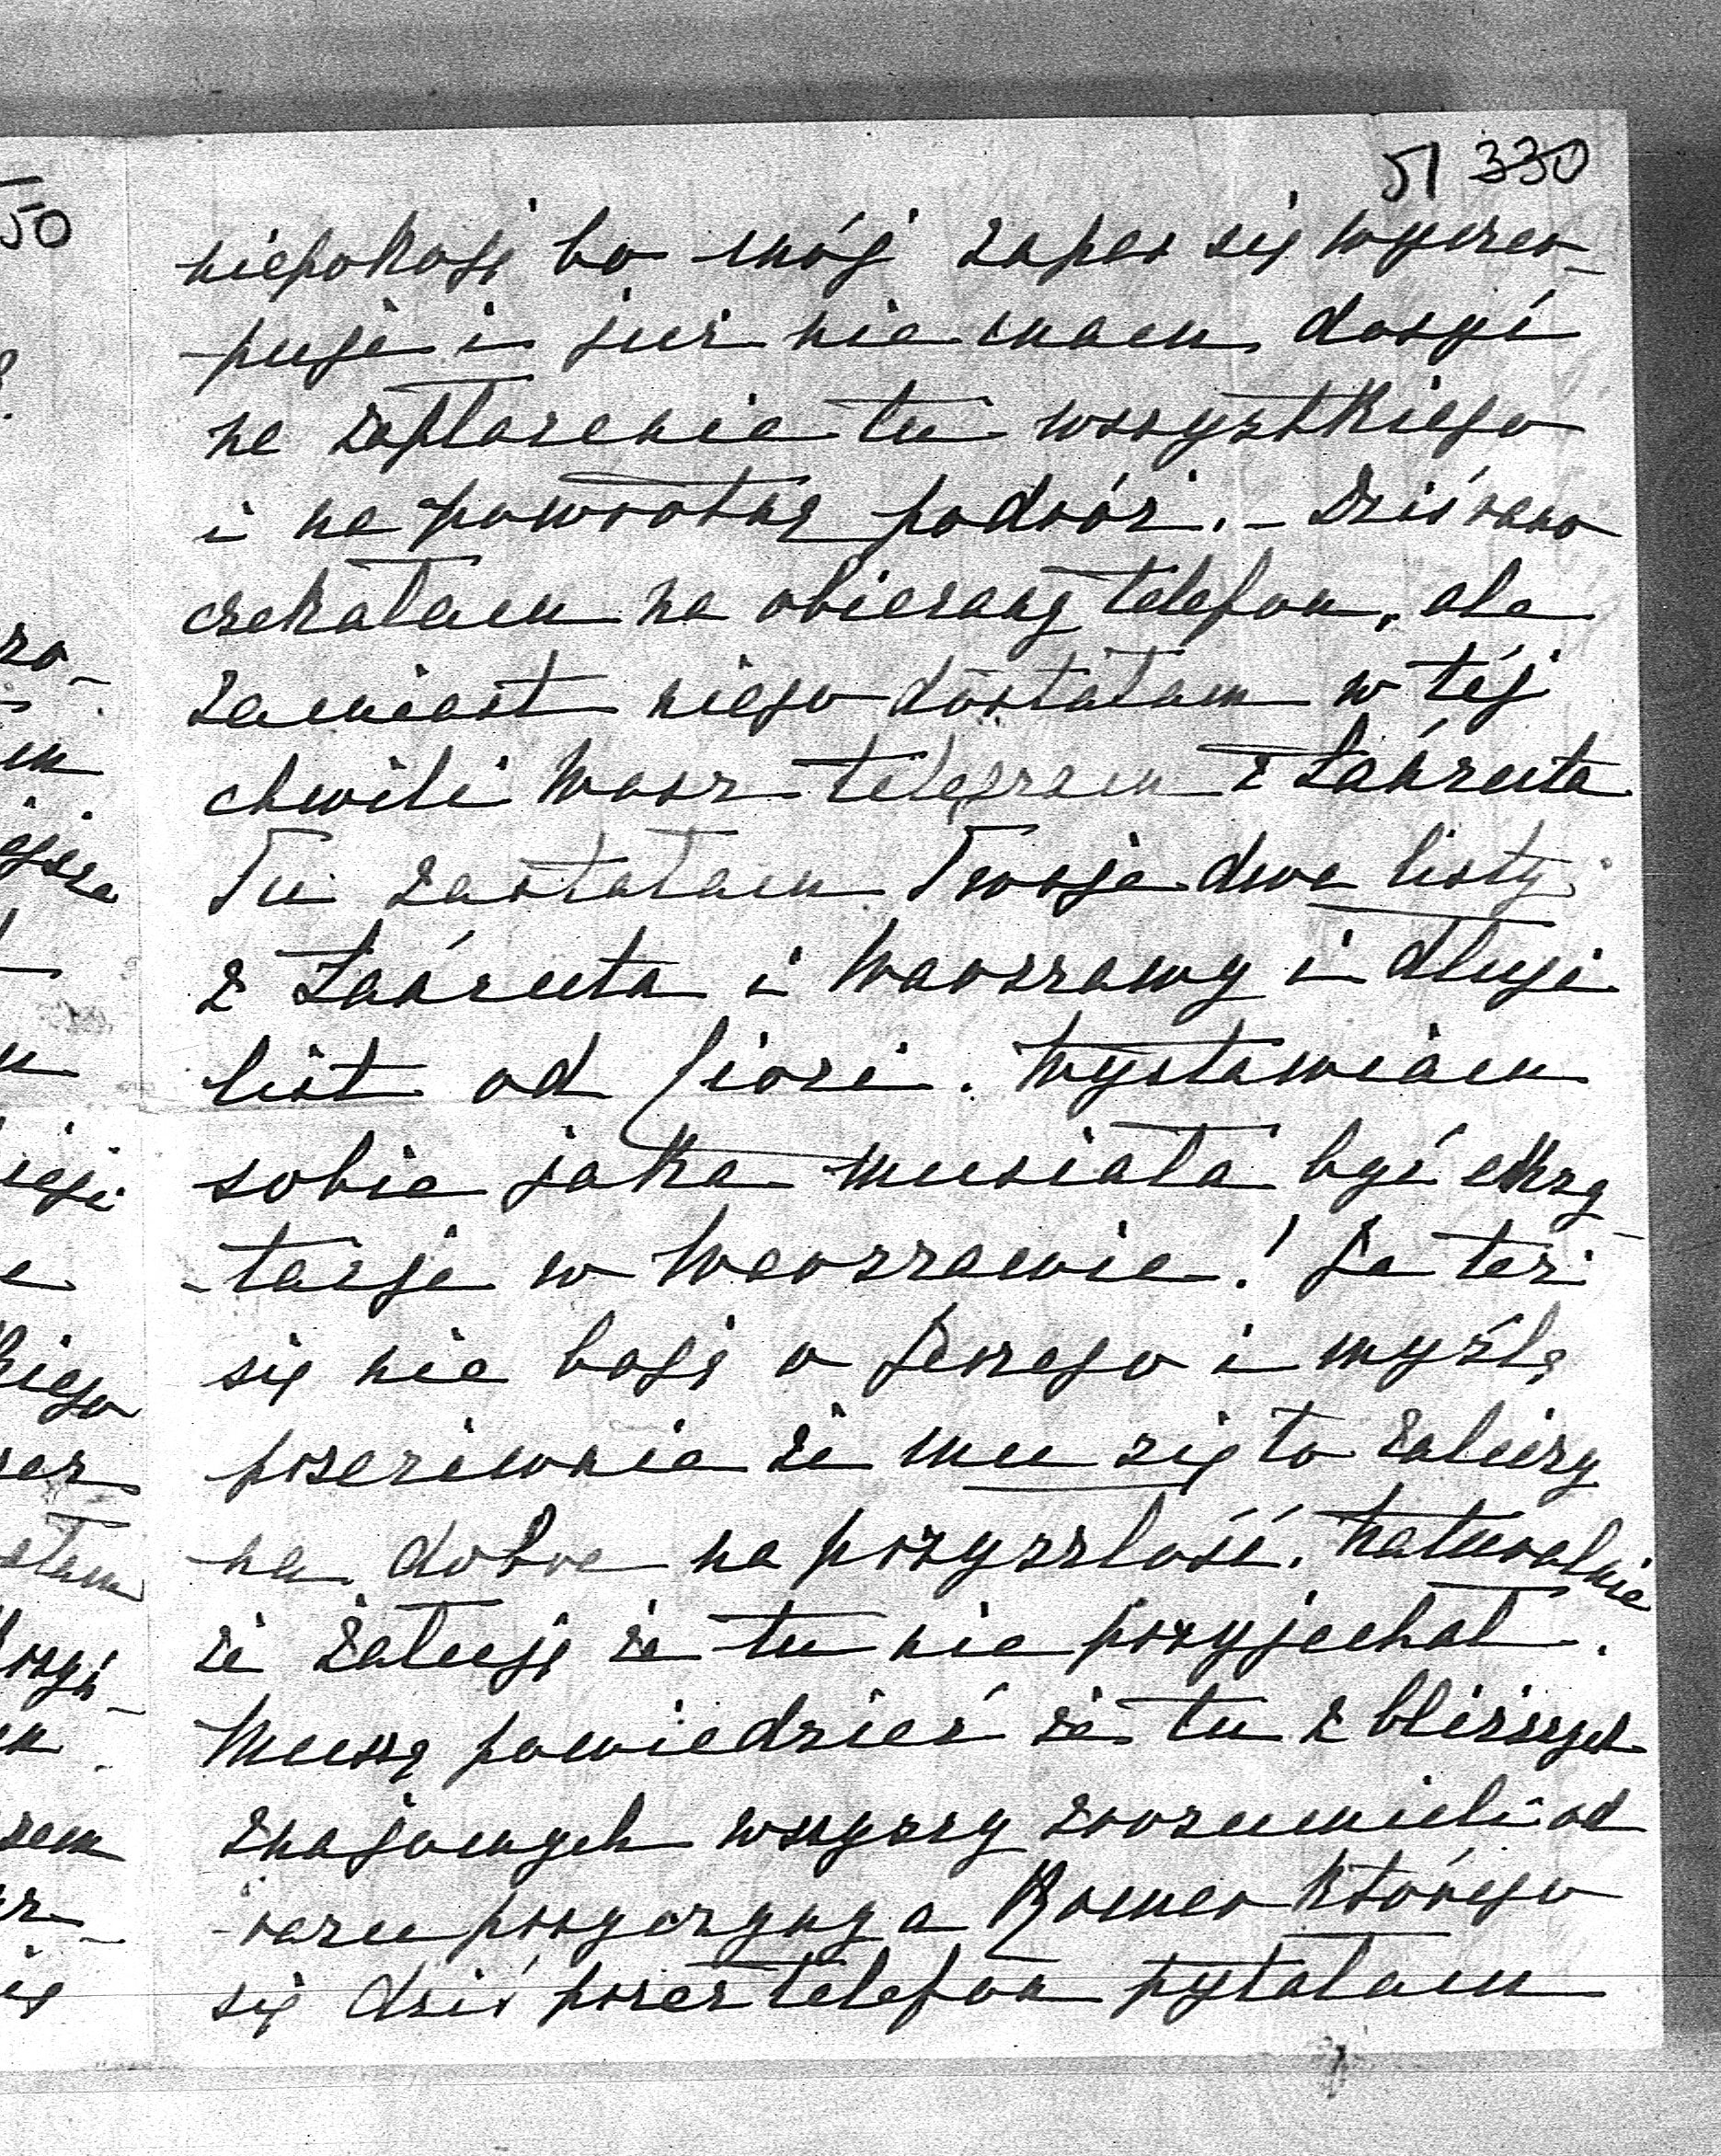 51 330
50
niepokoję bo mój zapas się wyczer-
-puje i już nie mam dosyć
na zapłacenie tu wszystkiego
i na powrotną podróż. - Dziś rano
czekałam na obiecany telefon, ale
zamiast niego dostałam w téj
chwili Wasz telegram z Łańcuta
Tu zastałam Twoje dwa listy
z Łańcuta i Warszawy i długi
list od Ciozi. Wystawiam
sobie jaka musiała być ekscy-
-tacja w Warszawie! Ja też
się nie boję o Jerzego i myślę
przeciwnie że mu się to zaliczy
na dobre na przyszłość. Naturalnie
że żałuję że tu nie przyjechał.
Muszę powiedzieć że tu z bliższych
znajomych wszyscy zrozumieli od
razu przyczynę a Romer którego
się dziś przez telefon pytałam